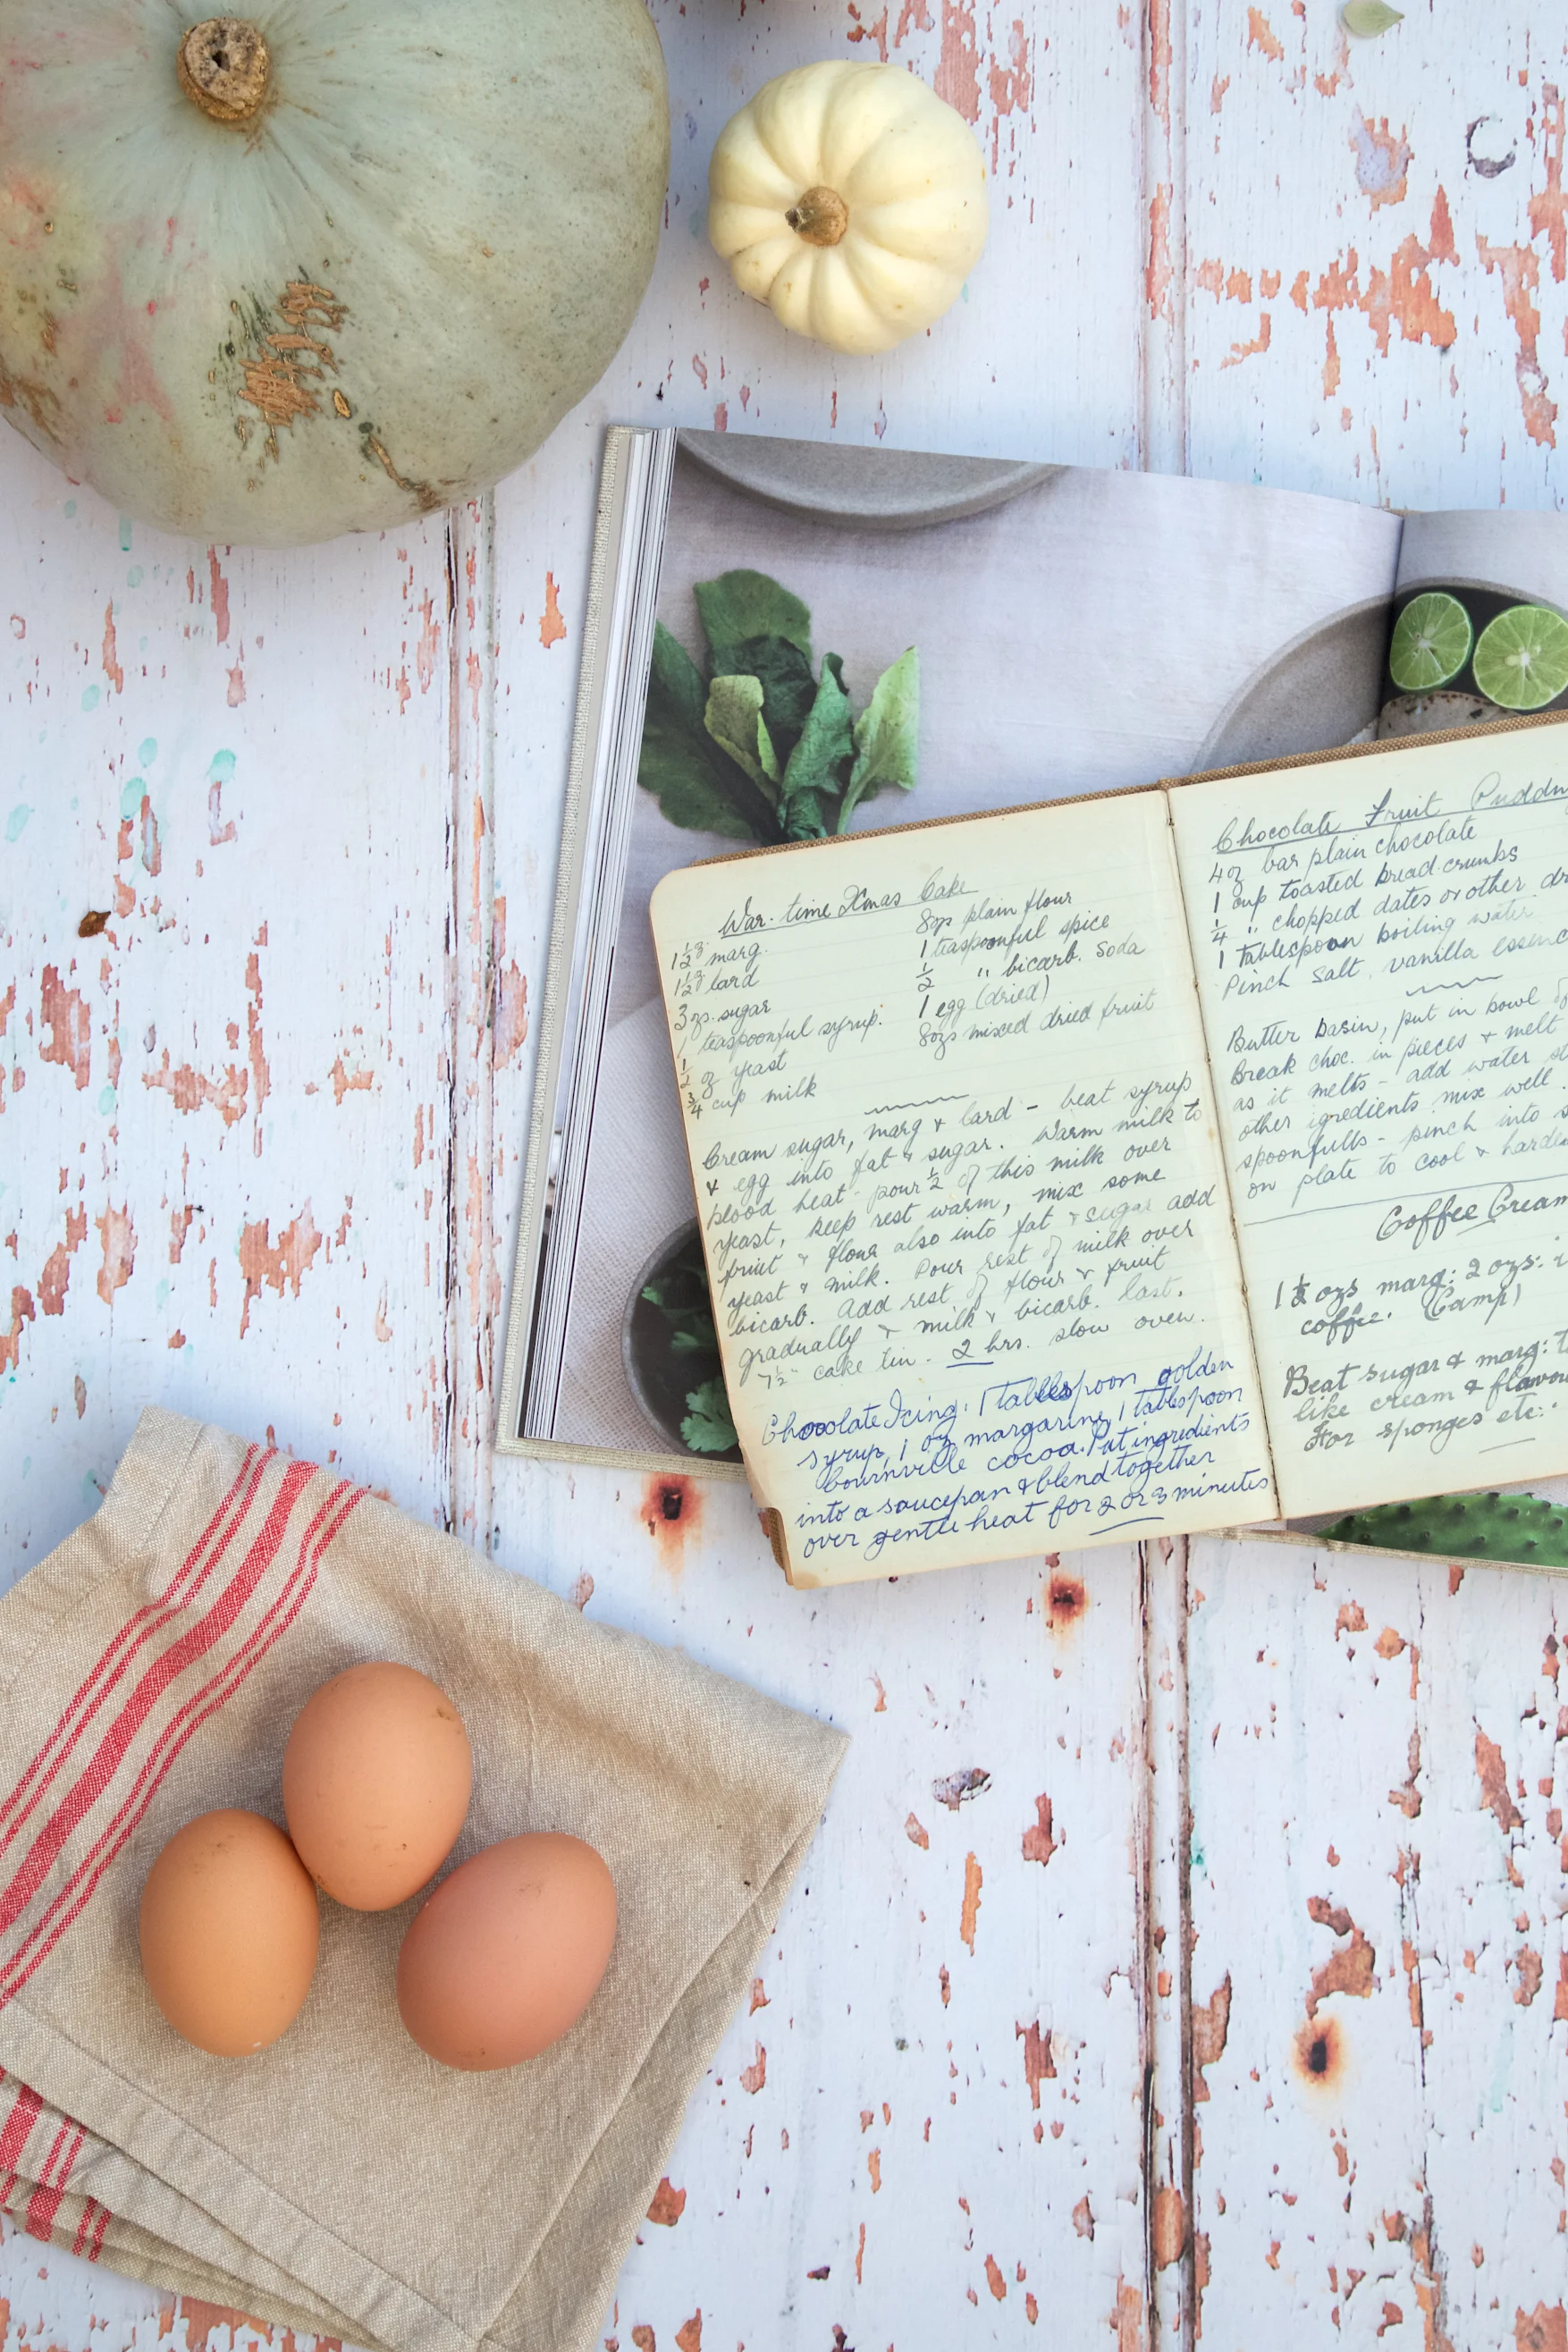 War-time Xmas Cake
1½ oz marg.
1½ oz lard
3 ozs. sugar
1 teaspoonful syrup.
½ oz yeast
¾ cup milk
8ozs plain flour
1 teaspoonful spice
½ " bicarb. soda
1 egg (dried)
8ozs mixed dried fruit
Cream sugar, marg & lard - beat syrup
& egg into fat & sugar. Warm milk to
blood heat - pour ½ of this milk over
yeast, keep rest warm, mix some
fruit & flour also into fat & sugar add
yeast & milk. Pour rest of milk over
bicarb. Add rest of flour & fruit
gradually & milk & bicarb. last.
7½" cake tin. 2 hrs. slow oven.
Chocolate Icing: 1 tablespoon golden
syrup, 1 oz margarine, 1 tablespoon
bournville cocoa. Put ingredients
into a saucepan & blend together
over gentle heat for 2 or 3 minutes
Chocolate Fruit Puddin
4oz bar plain chocolate
1 cup toasted bread crumbs
¼ " chopped dates or other dr
1 Tablespoon boiling water
Pinch salt, vanilla essenc
Butter basin, put in bowl of
Break choc. in pieces & melt
as it melts - add water st
other igredients mix well.
spoonfulls - pinch into s
on plate to cool & harde
Coffee Cream
1½ ozs marg: 2 ozs: i
coffee. (Camp)
Beat sugar & marg: t
like cream & flavou
For sponges etc: